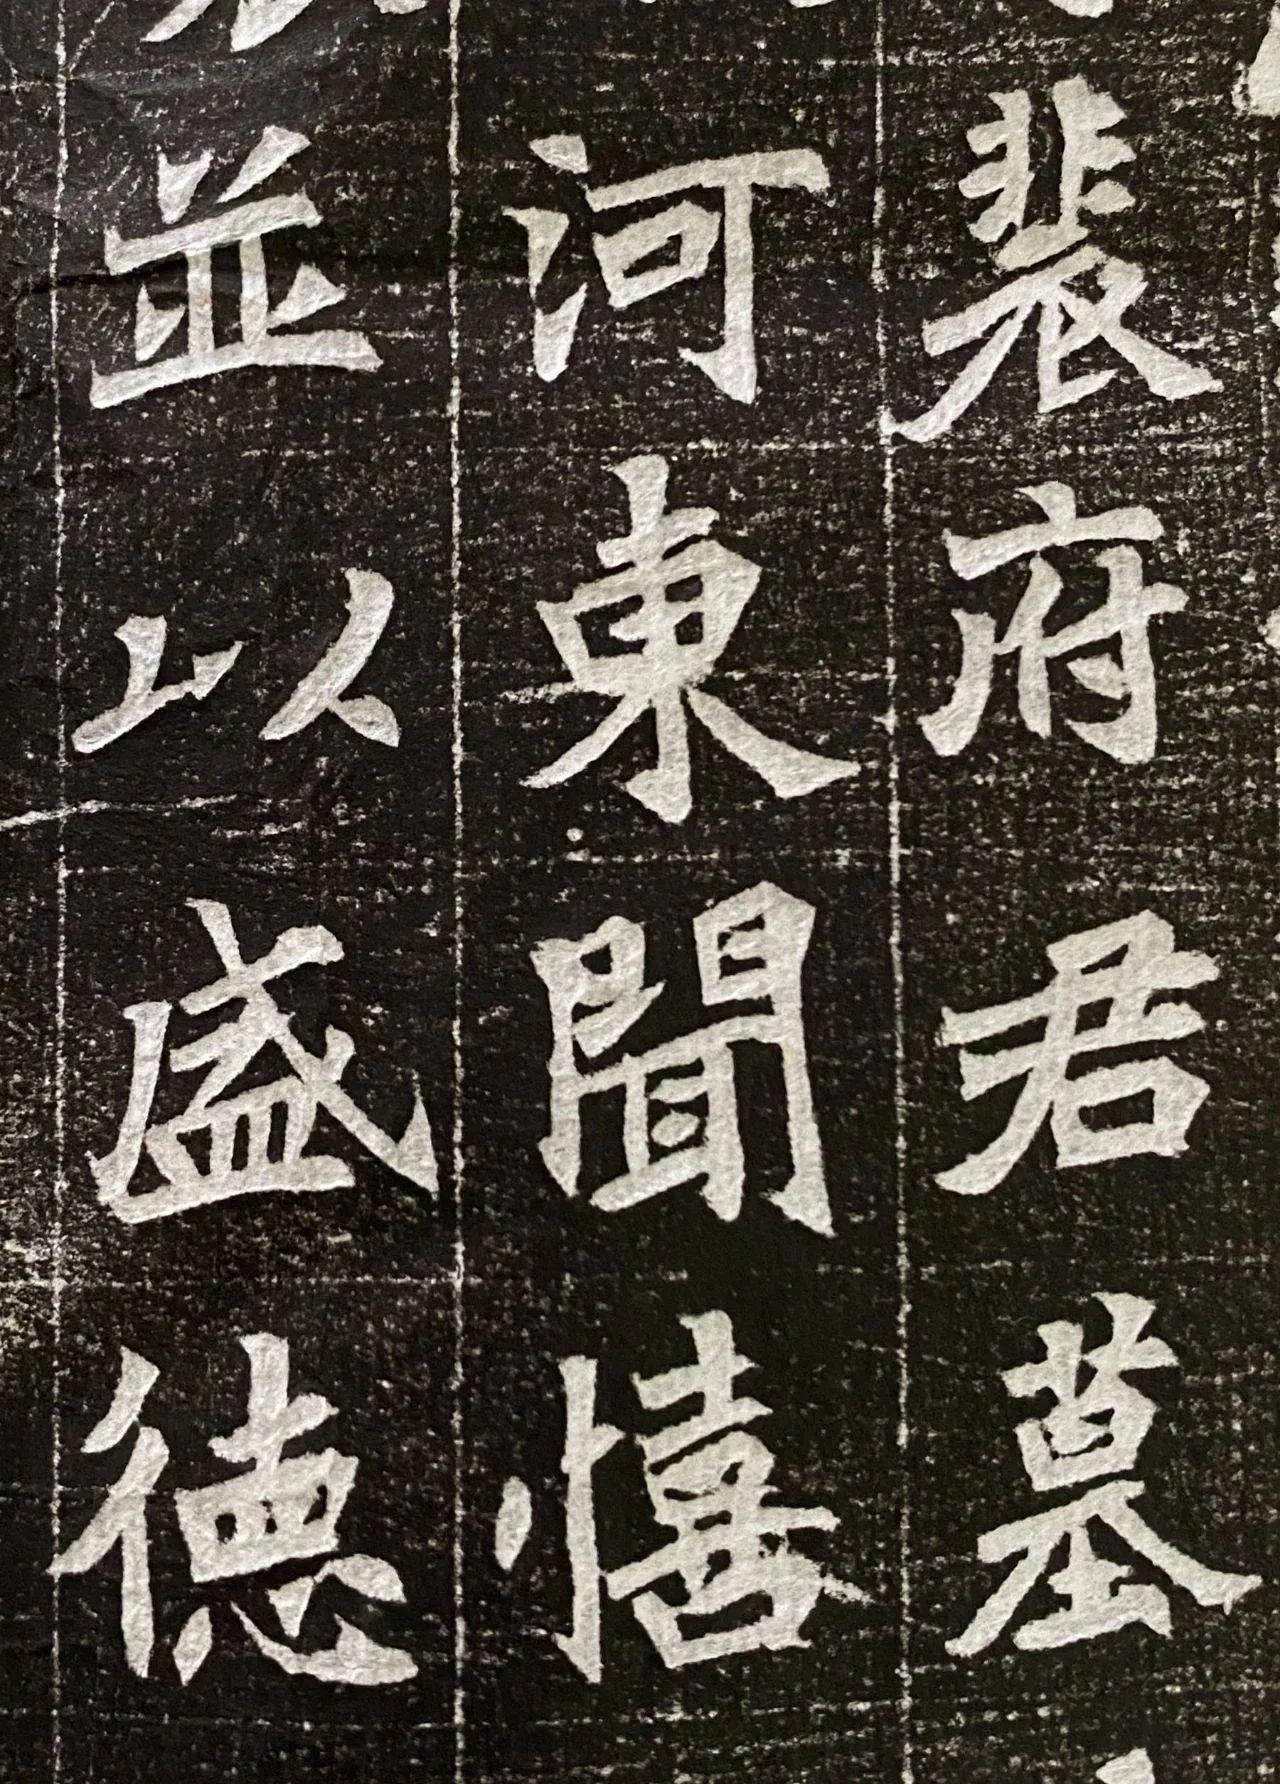 裴府君墓
河東聞憘
並以盛德